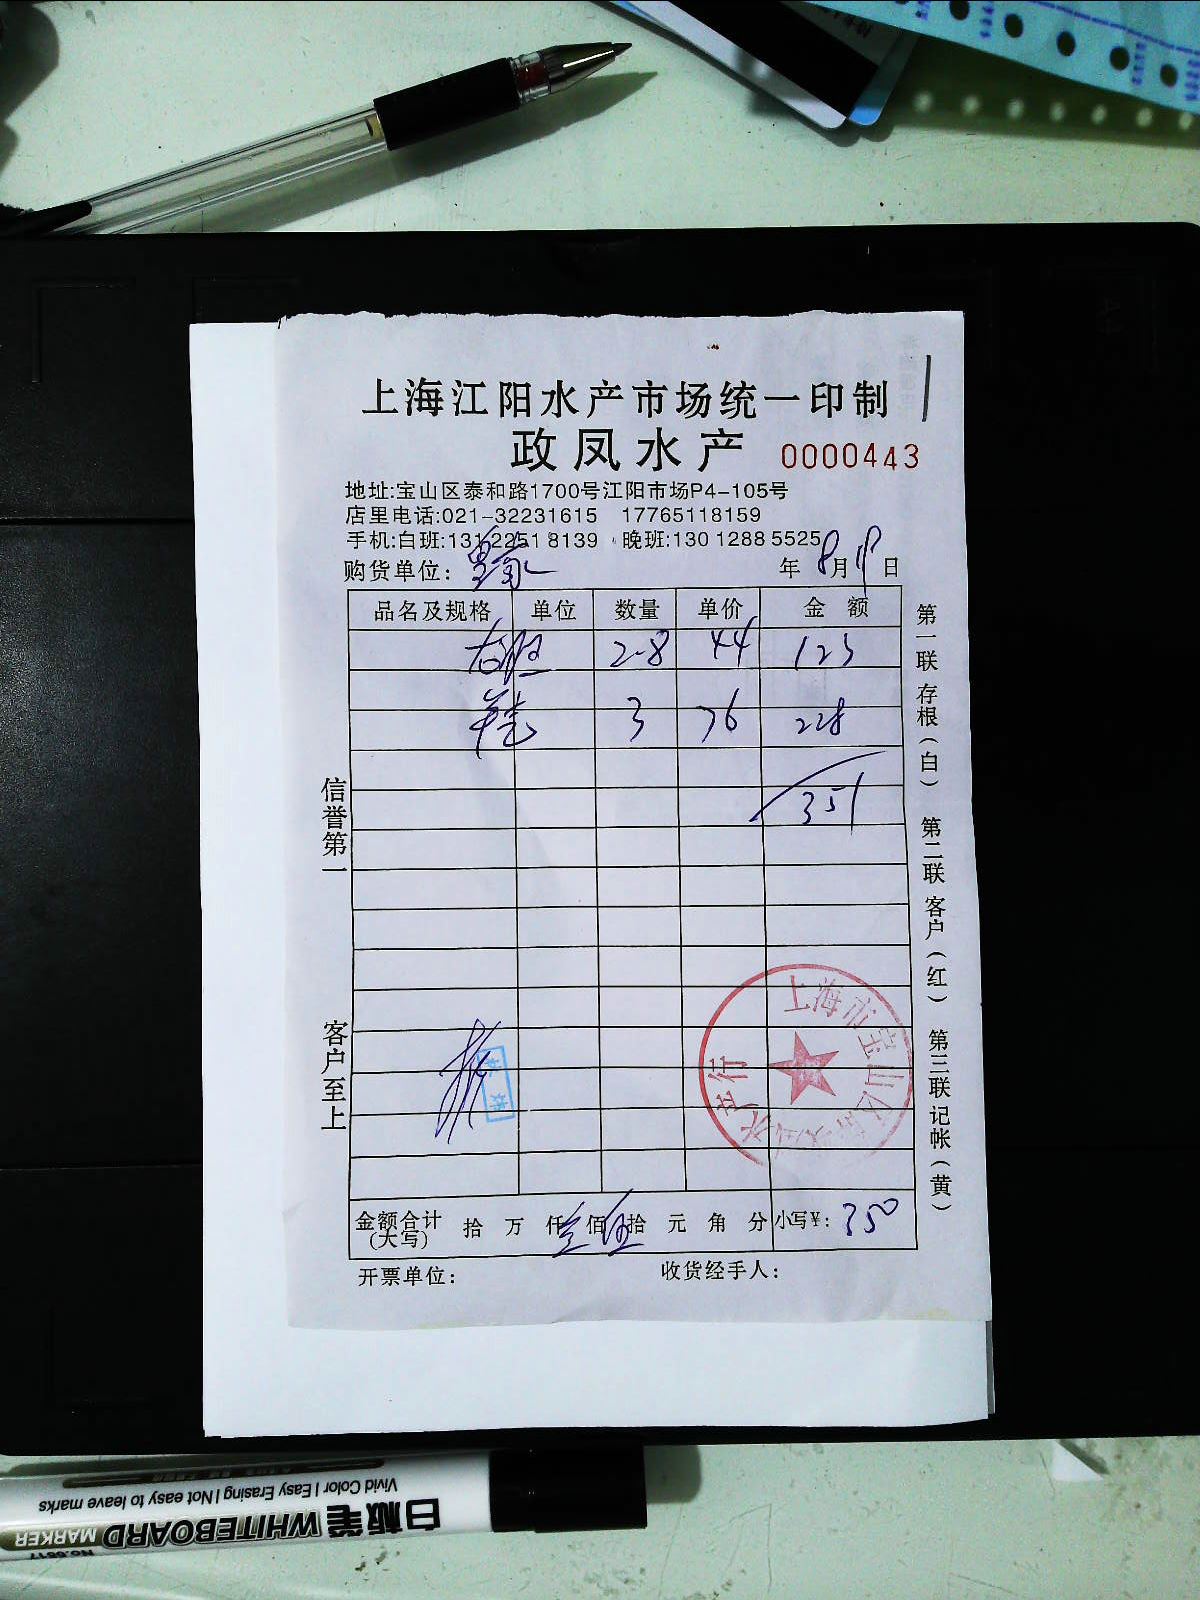 上海江阳水产市场统一印制
政凤水产 0000443
地址:宝山区泰和路1700号江阳市场P4-105号
店里电话:021-32231615 17765118159
手机:白班:131 2251 8139 晚班:130 1288 5525
购货单位: 年 8月 日
品名及规格 单位 数量 单价 金 额
2-8 44 123
3 76 228
351
信誉第一
客户至上
第一联 存根(白) 第二联 客户(红) 第三联 记帐(黄)
上海市宝山区 水产行
金额合计(大写) 拾 万 仟 叁 佰 伍 拾 元 角 分 小写¥: 350
开票单位: 收货经手人:
Vivid Color | Easy Erasing | Not easy to leave marks
白板笔 WHITEBOARD MARKER